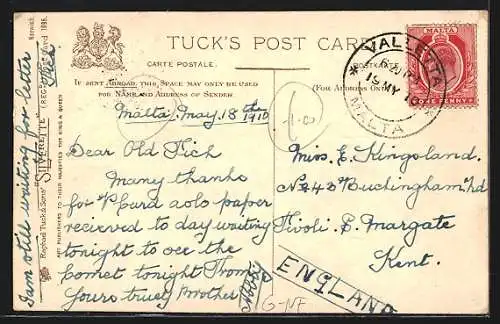 TUCK'S POST CARD
CARTE POSTALE.
POSTKARTE
IF SENT ABROAD, THIS SPACE MAY ONLY BE USED
FOR NAME AND ADDRESS OF SENDER
(FOR ADDRESS ONLY)
Malta, May, 18th 1910
Dear Old Tich
Many thanks
for P Card aolo paper
recieved to day waiting
tonight to see the
Comet tonight From
Yours truely Brother
I am still waiting for letter
"SILVERETTE"
Raphael Tuck & Sons'
ART PUBLISHERS TO THEIR MAJESTIES THE KING & QUEEN
Miss, E, Kingsland,
No 243 Buckingham Rd
Tivoli E. Margate
Kent.
ENGLAND
VALLETTA
19 MY 10
MALTA
MALTA
ONE PENNY